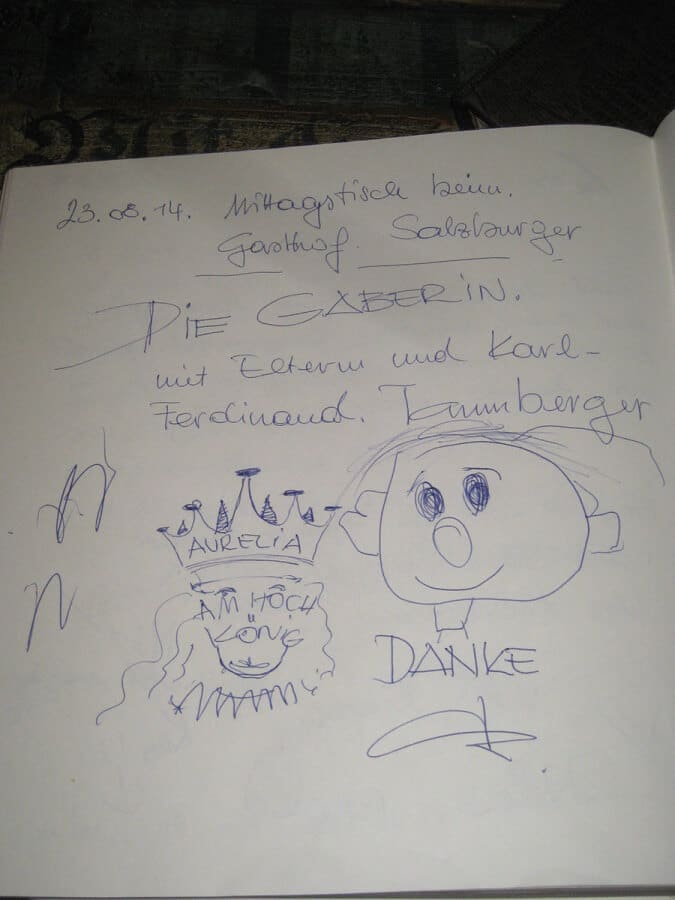 23.08.14. Mittagstisch beim.
Gasthof. Salzburger
DIE GABERIN.
mit Eltern und Karl-
Ferdinand. Tammberger
AURELIA
AM HOCH
KÖNIG
DANKE